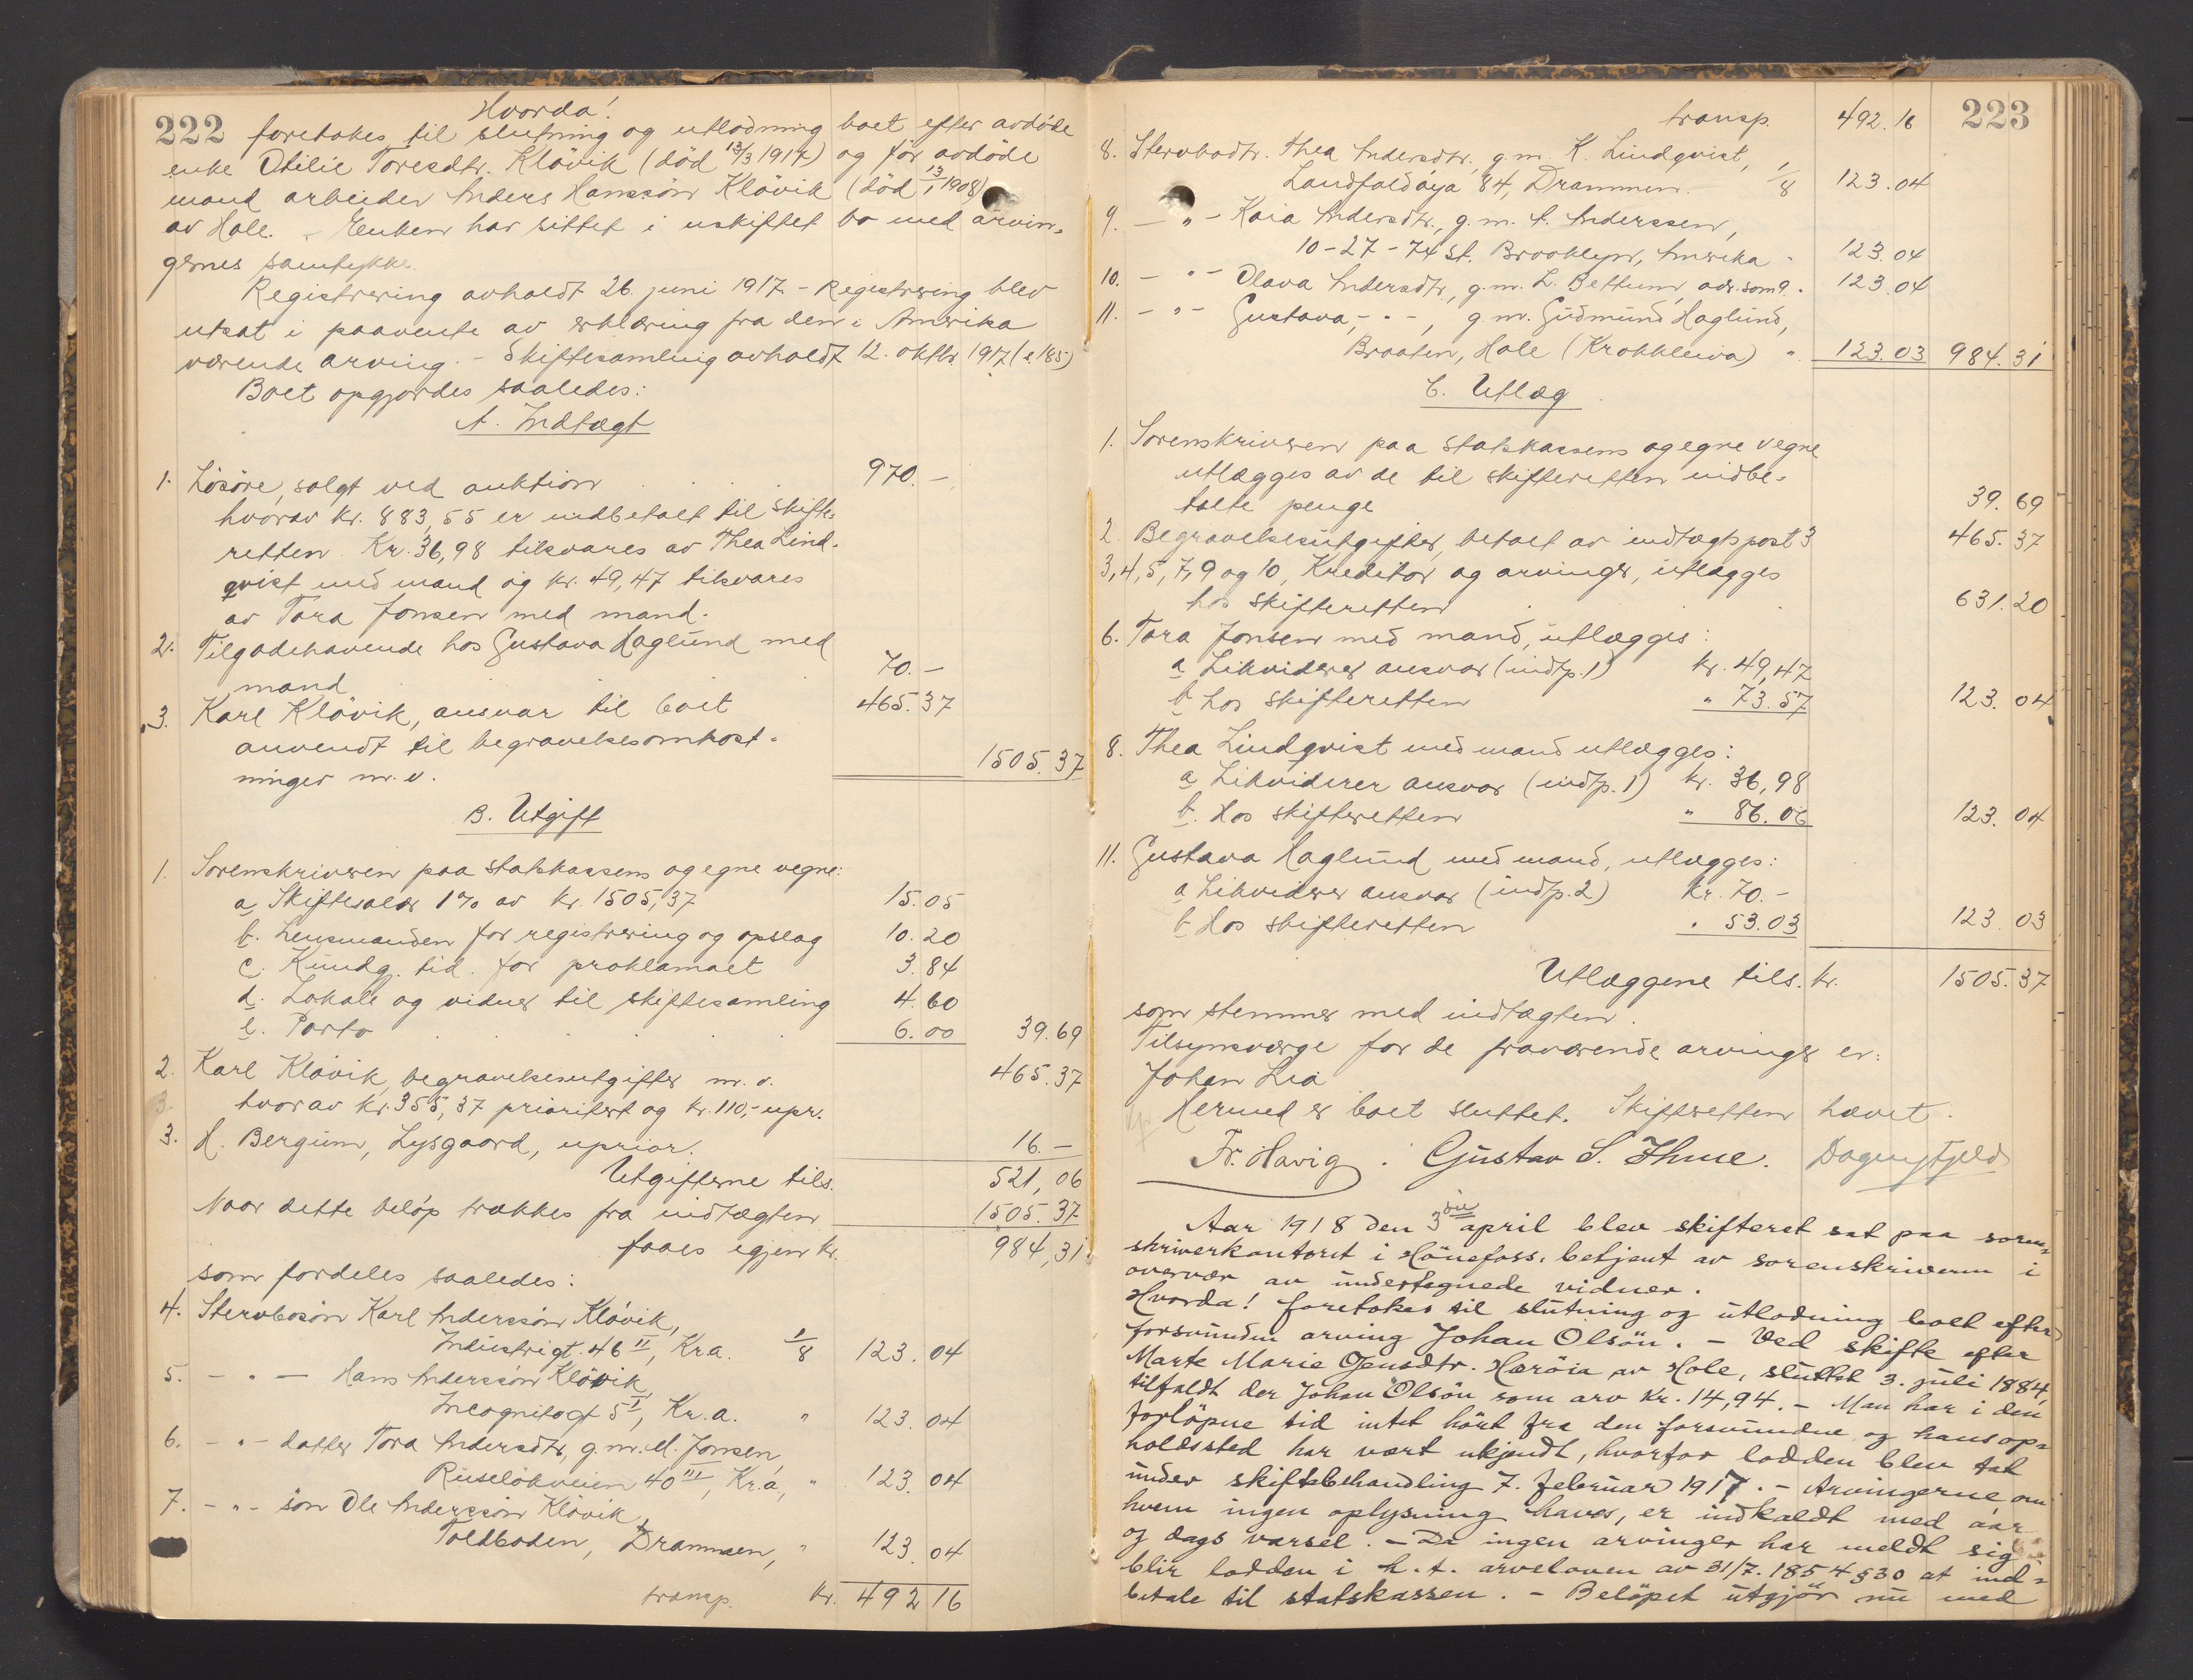 222
Hvorda!
foretokes til slutning og utlodning boet efter avdøde
enke Otilie Toresdtr. Kløvik (død 13/3 1917) og før avdøde
mand arbeider Anders Hanssøn Kløvik (død 13/1 1908)
av Hole. - Enken har sittet i uskiftet bo med arvin-
gernes samtykke.
Registrering avholdt 26. juni 1917 - Registrering blev
utsat i paavente av erklæring fra den i Amerika
værende arving. - Skiftesamling avholdt 12. oktbr 1917 (s. 185)
Boet opgjordes saaledes:
A. Indtægt
1. Løsøre, solgt ved auktion 970.-
hvorav kr. 883,55 er indbetalt til skifte-
retten. Kr. 36,98 tilsvares av Thea Lind-
qvist med mand og kr. 49,47 tilsvares
av Tora Jonsen med mand.
2. Tilgodehavende hos Gustava Haglund med
mand 70.-
3. Karl Kløvik, ansvar til boet 465.37
anvendt til begravelsesomkost-
ninger m.v. 1505.37
B. Utgift
1. Sorenskriveren paa statskassens og egne vegne:
a. Skiftesalær 1% av kr. 1505,37 15.05
b. Lensmanden for registrering og opslag 10.20
c. Kundg. tid. for proklamaet 3.84
d. Lokale og vidner til skiftesamling 4.60
e. Porto 6.00 39.69
2. Karl Kløvik, begravelsesutgifter m.v. 465.37
hvorav kr. 355,37 prioritert og kr. 110,- upr.
3. H. Bergum, Lysgaard, uprior. 16.-
Utgifterne tils. 521,06
Naar dette beløp trækkes fra indtægten 1505.37
faaes igjen kr. 984,31
som fordeles saaledes:
4. Stervbosøn Karl Anderssøn Kløvik,
Industrigt. 46 II, Kr.a. 1/8 123.04
5. - " - Hans Anderssøn Kløvik,
Incognitogt 5 I, Kr.a. " 123.04
6. - " - datter Tora Andersdtr, g.m. M. Jonsen,
Ruseløkveien 40 III, Kr.a, " 123.04
7. - " - søn Ole Anderssøn Kløvik,
Toldboden, Drammen, " 123.04
transp. kr. 492.16
223
transp. 492.16
8. Stervbodtr. Thea Andersdtr. g.m. K. Lindqvist,
Landfaldøya 84, Drammen. 1/8 123.04
9. - " - Kaia Andersdtr., g.m. A. Anderssen,
10-27-74 St. Brooklyn, Amerika " 123.04
10. - " - Olava Andersdtr, g.m. L. Bettum, adr. som 9. " 123.04
11. - " - Gustava, - " -, g.m. Gudmund Haglund,
Braaten, Hole (Krokkleiva) " 123.03 984.31
C. Utlæg
1. Sorenskriveren paa statskassens og egne vegne
utlægges av de til skifteretten indbe-
talte penge 39.69
2. Begravelsesutgifter, betalt av indtægtspost 3 465.37
3, 4, 5, 7, 9 og 10, Kreditor og arvinger, utlægges
hos skifteretten 631.20
6. Tora Jonsen med mand, utlægges:
a. Likviderer ansvar (indtp. 1) kr. 49,47
b. hos skifteretten " 73.57 123.04
8. Thea Lindqvist med mand utlægges:
a. Likviderer ansvar (indtp. 1) kr. 36,98
b. Hos skifteretten " 86.06 123.04
11. Gustava Haglund med mand, utlægges:
a. Likviderer ansvar (indtp. 2) kr. 70.-
b. Hos skifteretten " 53.03 123.03
Utlæggene tils. kr. 1505.37
som stemmer med indtægten.
Tilsynsværge for de fraværende arvinger er:
Johan Lia
Hermed er boet sluttet. Skifteretten hævet.
Fr. Havig. Gustav S. Thme. Dagny Fjeld
Aar 1918 den 3die april blev skifteret sat paa soren-
skriverkontoret i Hönefoss, betjent av sorenskriveren i
overvær av undertegnede vidner.
Hvorda! foretokes til slutning og utlodning boet efter
forsvunden arving Johan Olsön. - Ved skifte efter
Marte Marie Jensdtr. Hæröia av Hole, sluttet 3. juli 1884,
tilfaldt der Johan Olsön som arv kr. 14,94. - Man har i den
forlöpne tid intet hört fra den forsvundne og hans op-
holdssted har vært ukjendt, hvorfor lodden blev tat
under skiftebehandling 7. februar 1917. - Arvingerne om
hvem ingen oplysning haves, er indkaldt med aar
og dags varsel. - Da ingen arvinger har meldt sig
blir lodden i h.t. arveloven av 31/7. 1854 § 30 at ind-
betale til statskassen. - Beløpet utgjör nu med